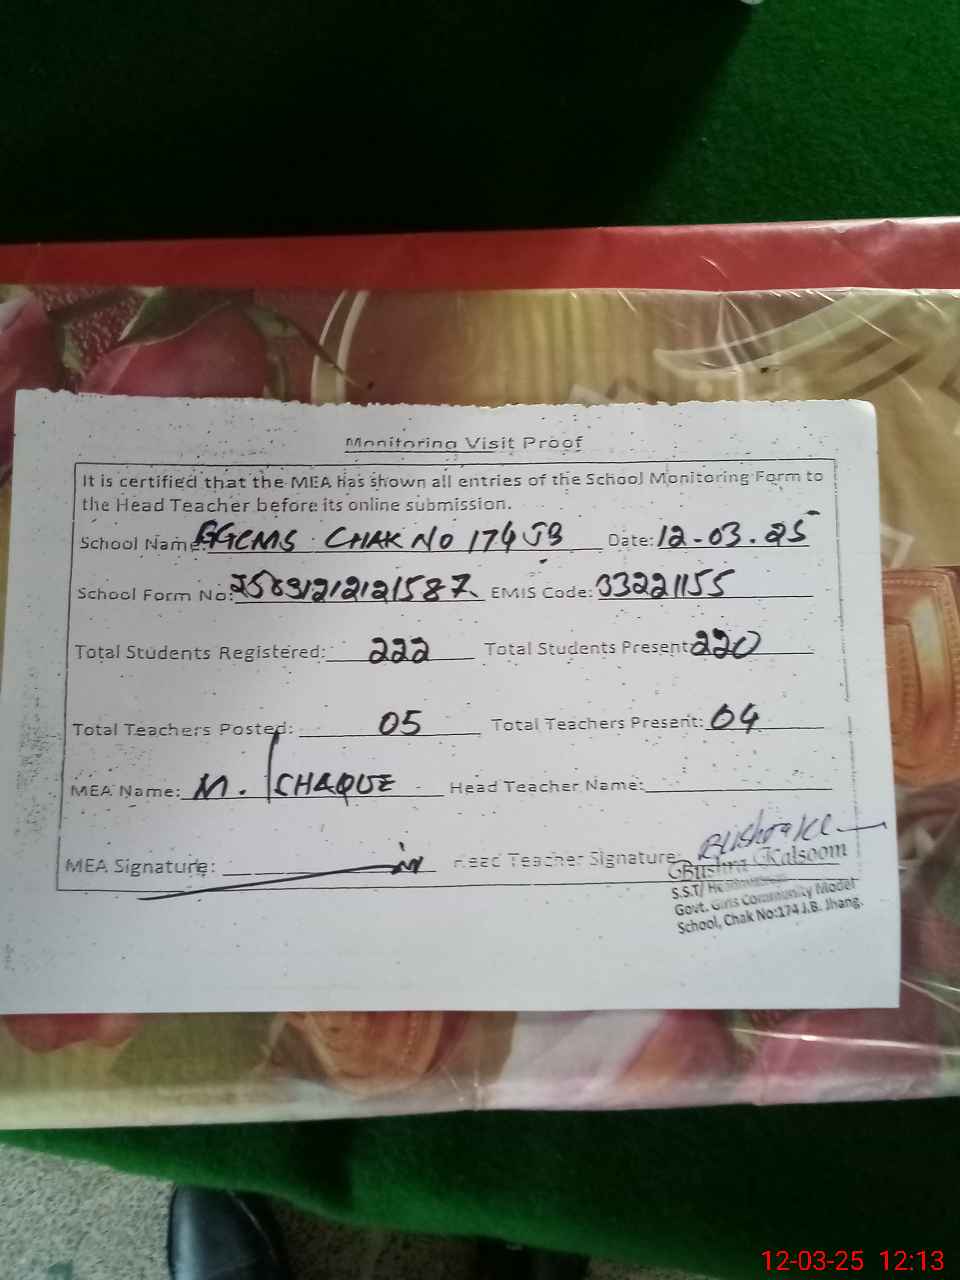 Monitoring Visit Proof
It is certified that the MEA has shown all entries of the School Monitoring Form to
the Head Teacher before its online submission.
School Name: GGCMS CHAK NO 174 JB Date: 12-03-25
School Form No: EMIS Code: 33221155
Total Students Registered: 222 Total Students Present: 220
Total Teachers Posted: 05 Total Teachers Present: 04
MEA Name: M. ISHAQUE Head Teacher Name:
MEA Signature: Head Teacher Signature:
Bushra Kalsoom
S.S.T/
Govt. Girls Community Model
School, Chak No:174 J.B. Jhang.
12-03-25 12:13